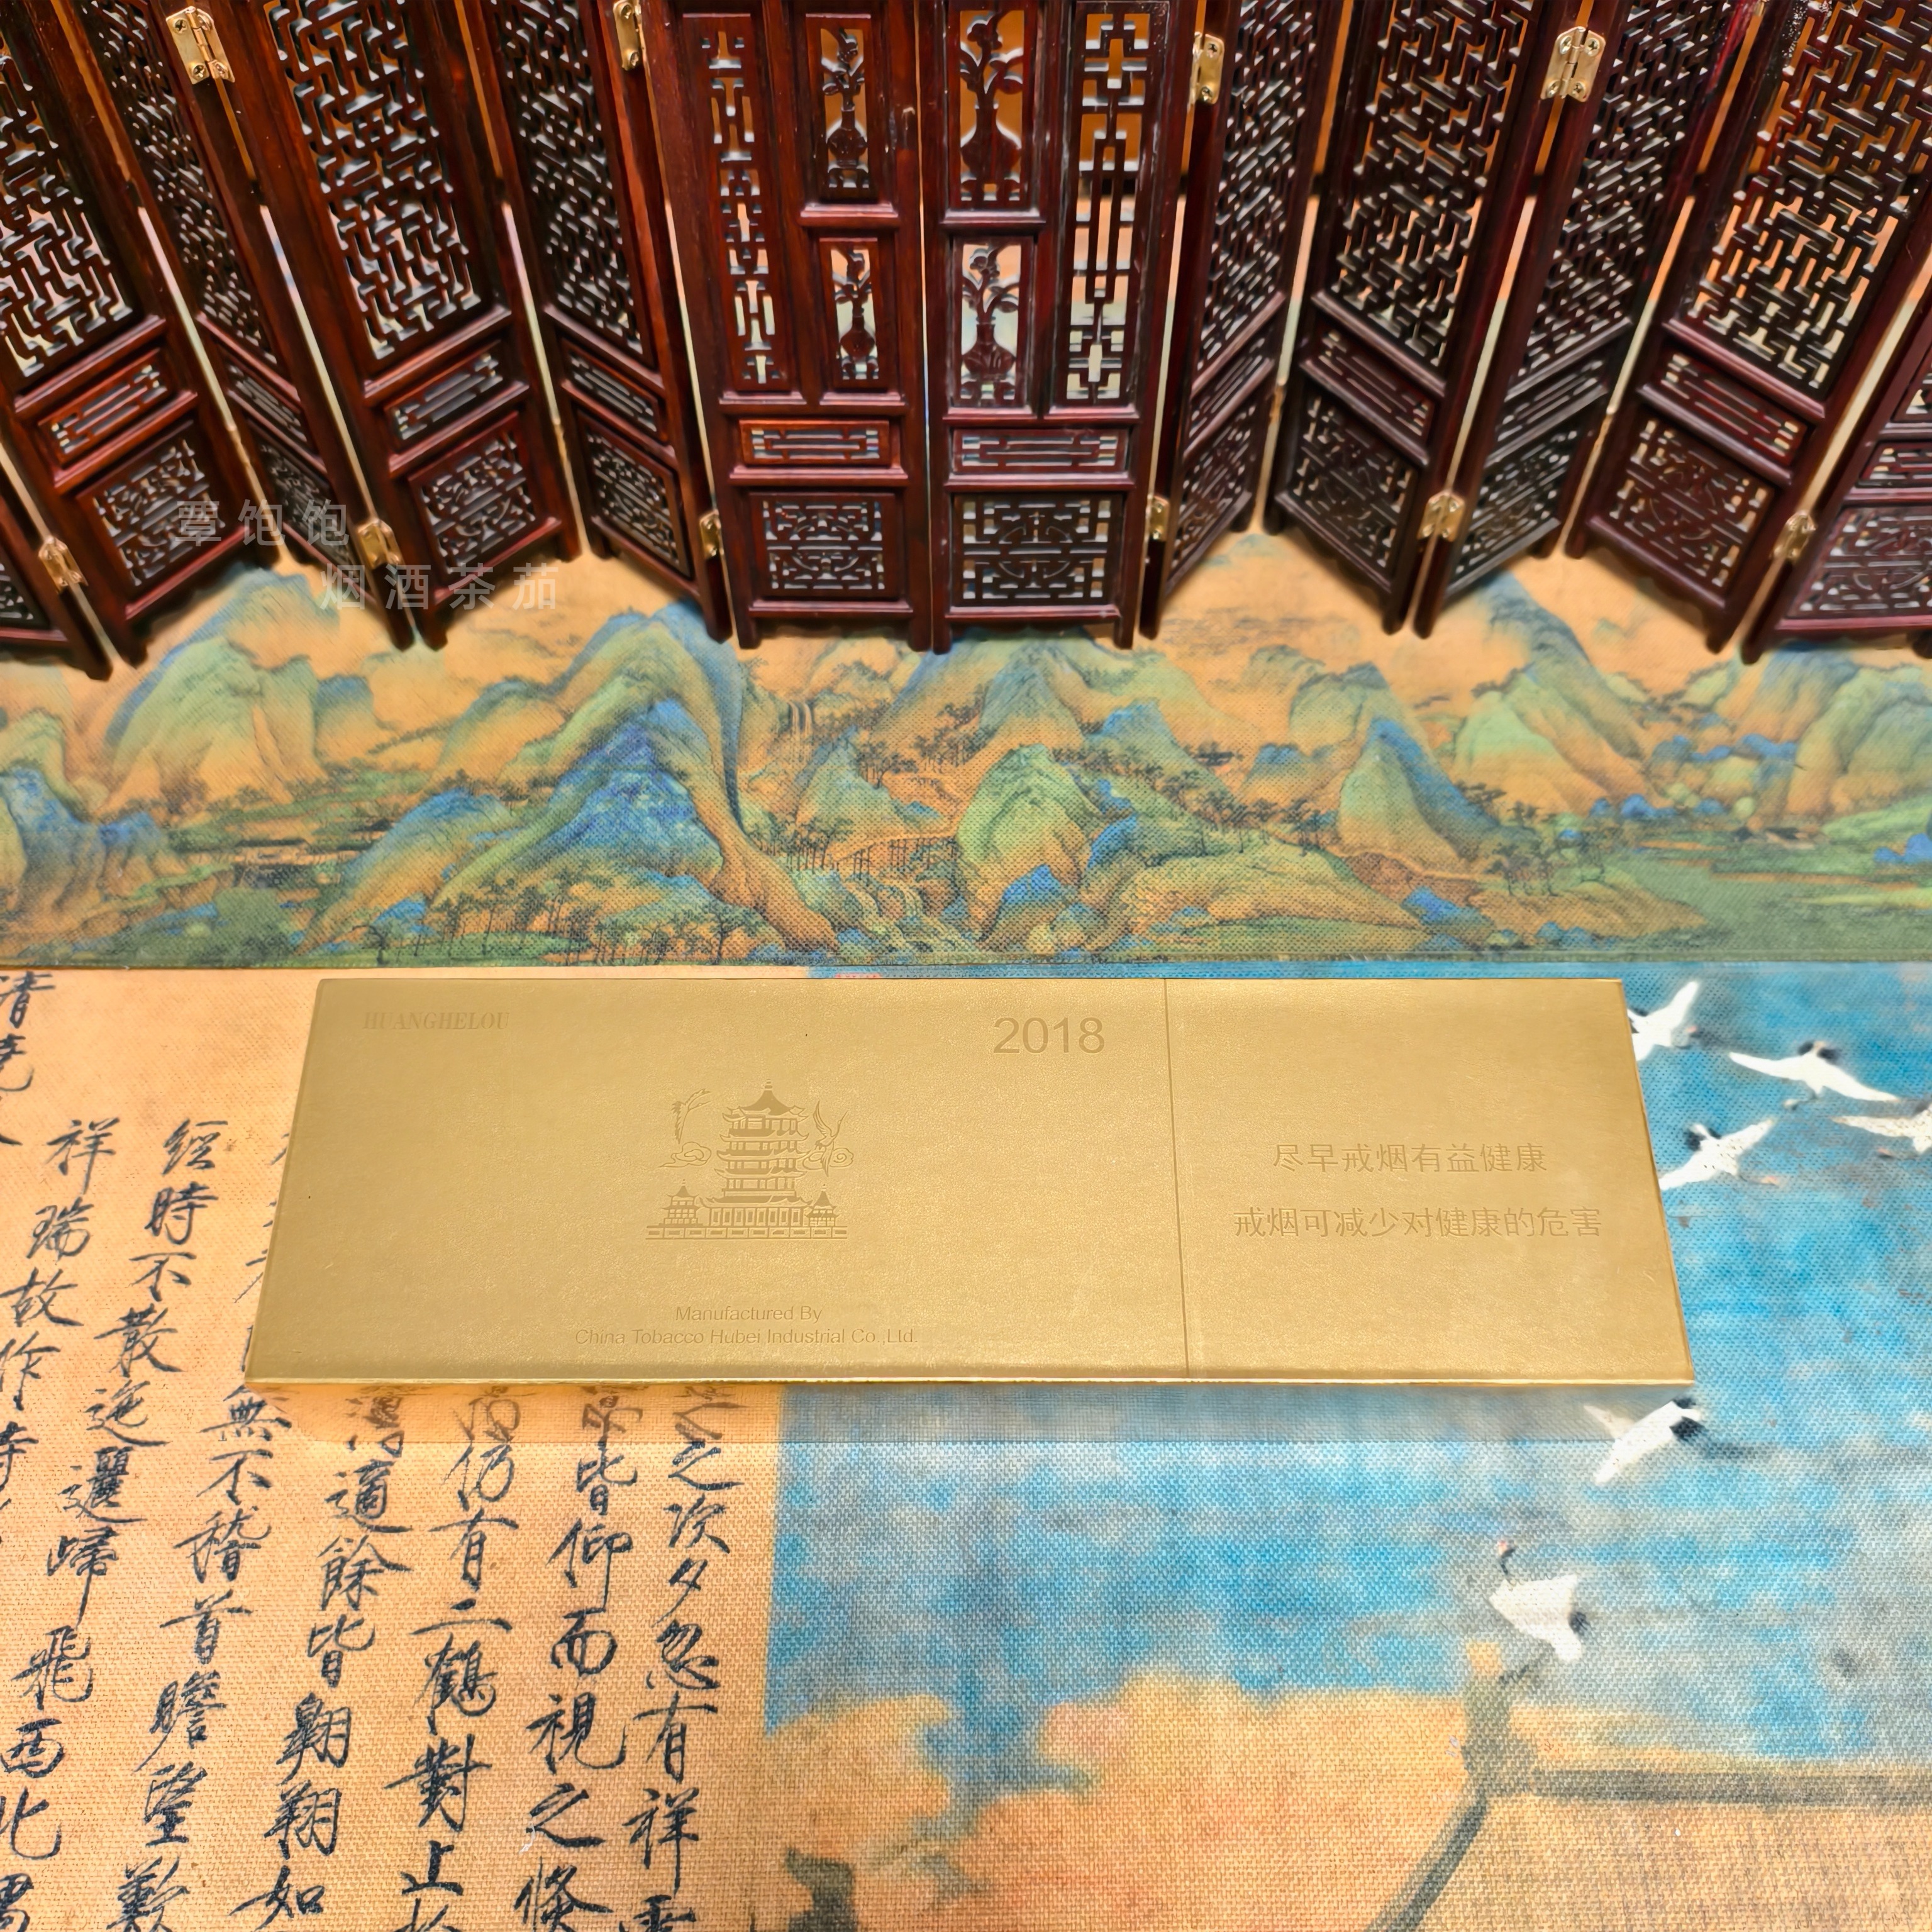 覃饱饱
烟酒茶茄
HUANGHELOU
2018
尽早戒烟有益健康
戒烟可减少对健康的危害
Manufactured By
China Tobacco Hubei Industrial Co.,Ltd.
之次夕忽有祥
皆仰而視之倏
仍有二鶴對止
適餘皆翱翔如
無不稽首瞻望歎
經時不散迤邐歸飛西北
祥瑞故作
清曉